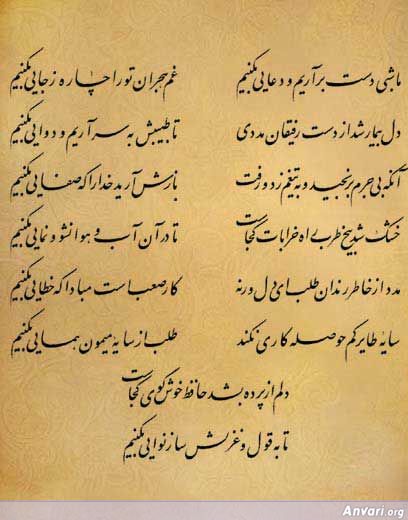 ما شبی دست برآریم و دعایی بکنیم غم هجران تو را چاره ز جایی بکنیم
دل بیمار شد از دست رفیقان مددی تا طبیبش به سر آریم و دوایی بکنیم
آنکه بی جرم برنجید و به تیغم زد و رفت بازش آرید خدا را که صفایی بکنیم
خشک شد بیخ طرب راه خرابات کجاست تا در آن آب و هوا نشو و نمایی بکنیم
مدد از خاطر رندان طلب ای دل ورنه کار صعب است مبادا که خطایی بکنیم
سایه طایر کم حوصله کاری نکند طلب از سایه میمون همایی بکنیم
دلم از پرده بشد حافظ خوش گوی کجاست
تا به قول و غزلش ساز نوایی بکنیم
Anvari.org